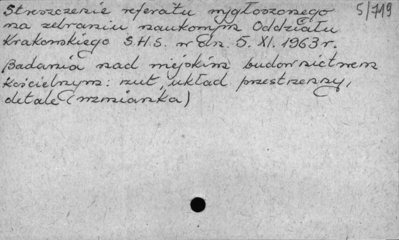 Streszczenie referatu wygłoszonego 5/719
na zebraniu naukowym Oddziału
Krakowskiego S.H.S. w dn. 5. XI. 1963 r.
Badania nad wiejskim budownictwem
kościelnym: rzut, układ przestrzenny,
detale (wzmianka)